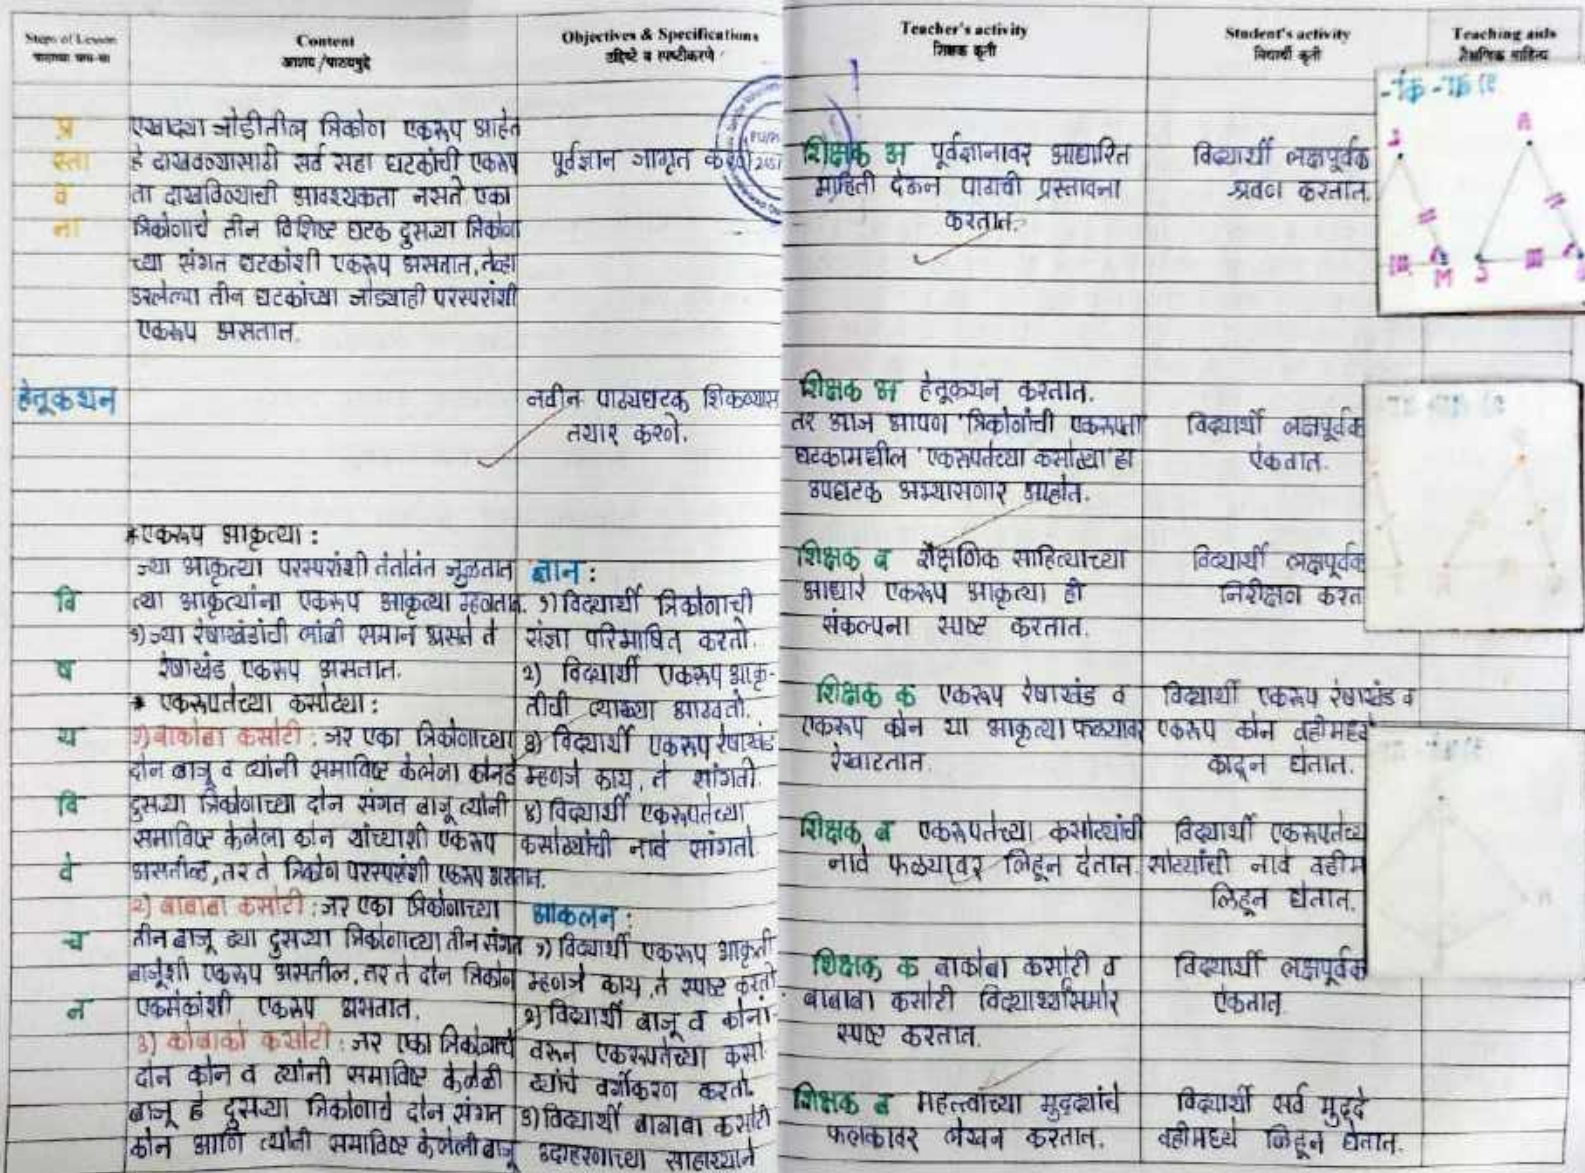 Steps of Lesson
Content
आशय /पाठ्यमुद्दे
Objectives & Specifications
उद्दिष्टे व स्पष्टीकरणे
Teacher's activity
शिक्षक कृती
Student's activity
विद्यार्थी कृती
Teaching aids
शैक्षणिक साहित्य
प्र
स्ता
व
ना
एखाद्या जोडीतील त्रिकोण एकरूप आहेत
हे दाखवण्यासाठी सर्व सहा घटकांची एकरूप
ता दाखविण्याची आवश्यकता नसते एका
त्रिकोणाचे तीन विशिष्ट घटक दुसऱ्या त्रिकोणा
च्या संगत घटकांशी एकरूप असतात, तेव्हा
उरलेल्या तीन घटकांच्या जोड्याही परस्परांशी
एकरूप असतात.
पूर्वज्ञान जागृत करणे
शिक्षक अ पूर्वज्ञानावर आधारित
माहिती देऊन पाठाची प्रस्तावना
करतात.
विद्यार्थी लक्षपूर्वक
श्रवण करतात.
M
हेतूकथन
नवीन पाठ्यघटक शिकण्यास
तयार करणे.
शिक्षक अ हेतूकथन करतात.
तर आज आपण 'त्रिकोणांची एकरूपता
घटकामधील 'एकरूपतेच्या कसोट्या' हा
उपघटक अभ्यासणार आहोत.
विद्यार्थी लक्षपूर्वक
ऐकतात.
वि
ष
य
वि
वे
च
न
* एकरूप आकृत्या :
ज्या आकृत्या परस्परांशी तंतोतंत जुळतात
त्या आकृत्यांना एकरूप आकृत्या म्हणतात.
१) ज्या रेषाखंडांची लांबी समान असते ते
रेषाखंड एकरूप असतात.
* एकरूपतेच्या कसोट्या :
१) बाकोबा कसोटी : जर एका त्रिकोणाच्या
दोन बाजू व त्यांनी समाविष्ट केलेला कोन हे
दुसऱ्या त्रिकोणाच्या दोन संगत बाजू त्यांनी
समाविष्ट केलेला कोन यांच्याशी एकरूप
असतील, तर ते त्रिकोण परस्परांशी एकरूप असतात.
२) बाबाबा कसोटी : जर एका त्रिकोणाच्या
तीन बाजू ह्या दुसऱ्या त्रिकोणाच्या तीन संगत
बाजूंशी एकरूप असतील, तर ते दोन त्रिकोण
एकमेकांशी एकरूप असतात.
३) कोबाको कसोटी : जर एका त्रिकोणाचे
दोन कोन व त्यांनी समाविष्ट केलेली
बाजू हे दुसऱ्या त्रिकोणाचे दोन संगत
कोन आणि त्यांनी समाविष्ट केलेली बाजू
ज्ञान :
१) विद्यार्थी त्रिकोणाची
संज्ञा परिभाषित करतो.
२) विद्यार्थी एकरूप आकृ-
तीची व्याख्या आठवतो.
३) विद्यार्थी एकरूप रेषाखंड
म्हणजे काय, ते सांगतो.
४) विद्यार्थी एकरूपतेच्या
कसोट्यांची नावे सांगतो.
आकलन :
१) विद्यार्थी एकरूप आकृती
म्हणजे काय, ते स्पष्ट करतो
२) विद्यार्थी बाजू व कोनां-
वरून एकरूपतेच्या कसो
ट्यांचे वर्गीकरण करतो.
३) विद्यार्थी बाबाबा कसोटी
उदाहरणाच्या साहाय्याने
शिक्षक ब शैक्षणिक साहित्याच्या
आधारे एकरूप आकृत्या ही
संकल्पना स्पष्ट करतात.
शिक्षक क एकरूप रेषाखंड व
एकरूप कोन या आकृत्या फळ्यावर
रेखाटतात.
शिक्षक ब एकरूपतेच्या कसोट्यांची
नावे फळ्यावर लिहून देतात.
शिक्षक क बाकोबा कसोटी व
बाबाबा कसोटी विद्यार्थ्यांसमोर
स्पष्ट करतात.
शिक्षक ब महत्त्वाच्या मुद्द्यांचे
फलकावर लेखन करतात.
विद्यार्थी लक्षपूर्वक
निरीक्षण करत
विद्यार्थी एकरूप रेषाखंड व
एकरूप कोन वहीमध्ये
काढून घेतात.
विद्यार्थी एकरूपतेच्य
सोट्यांची नावे वहीम
लिहून घेतात.
विद्यार्थी लक्षपूर्वक
ऐकतात
विद्यार्थी सर्व मुद्दे
वहीमध्ये लिहून घेतात.